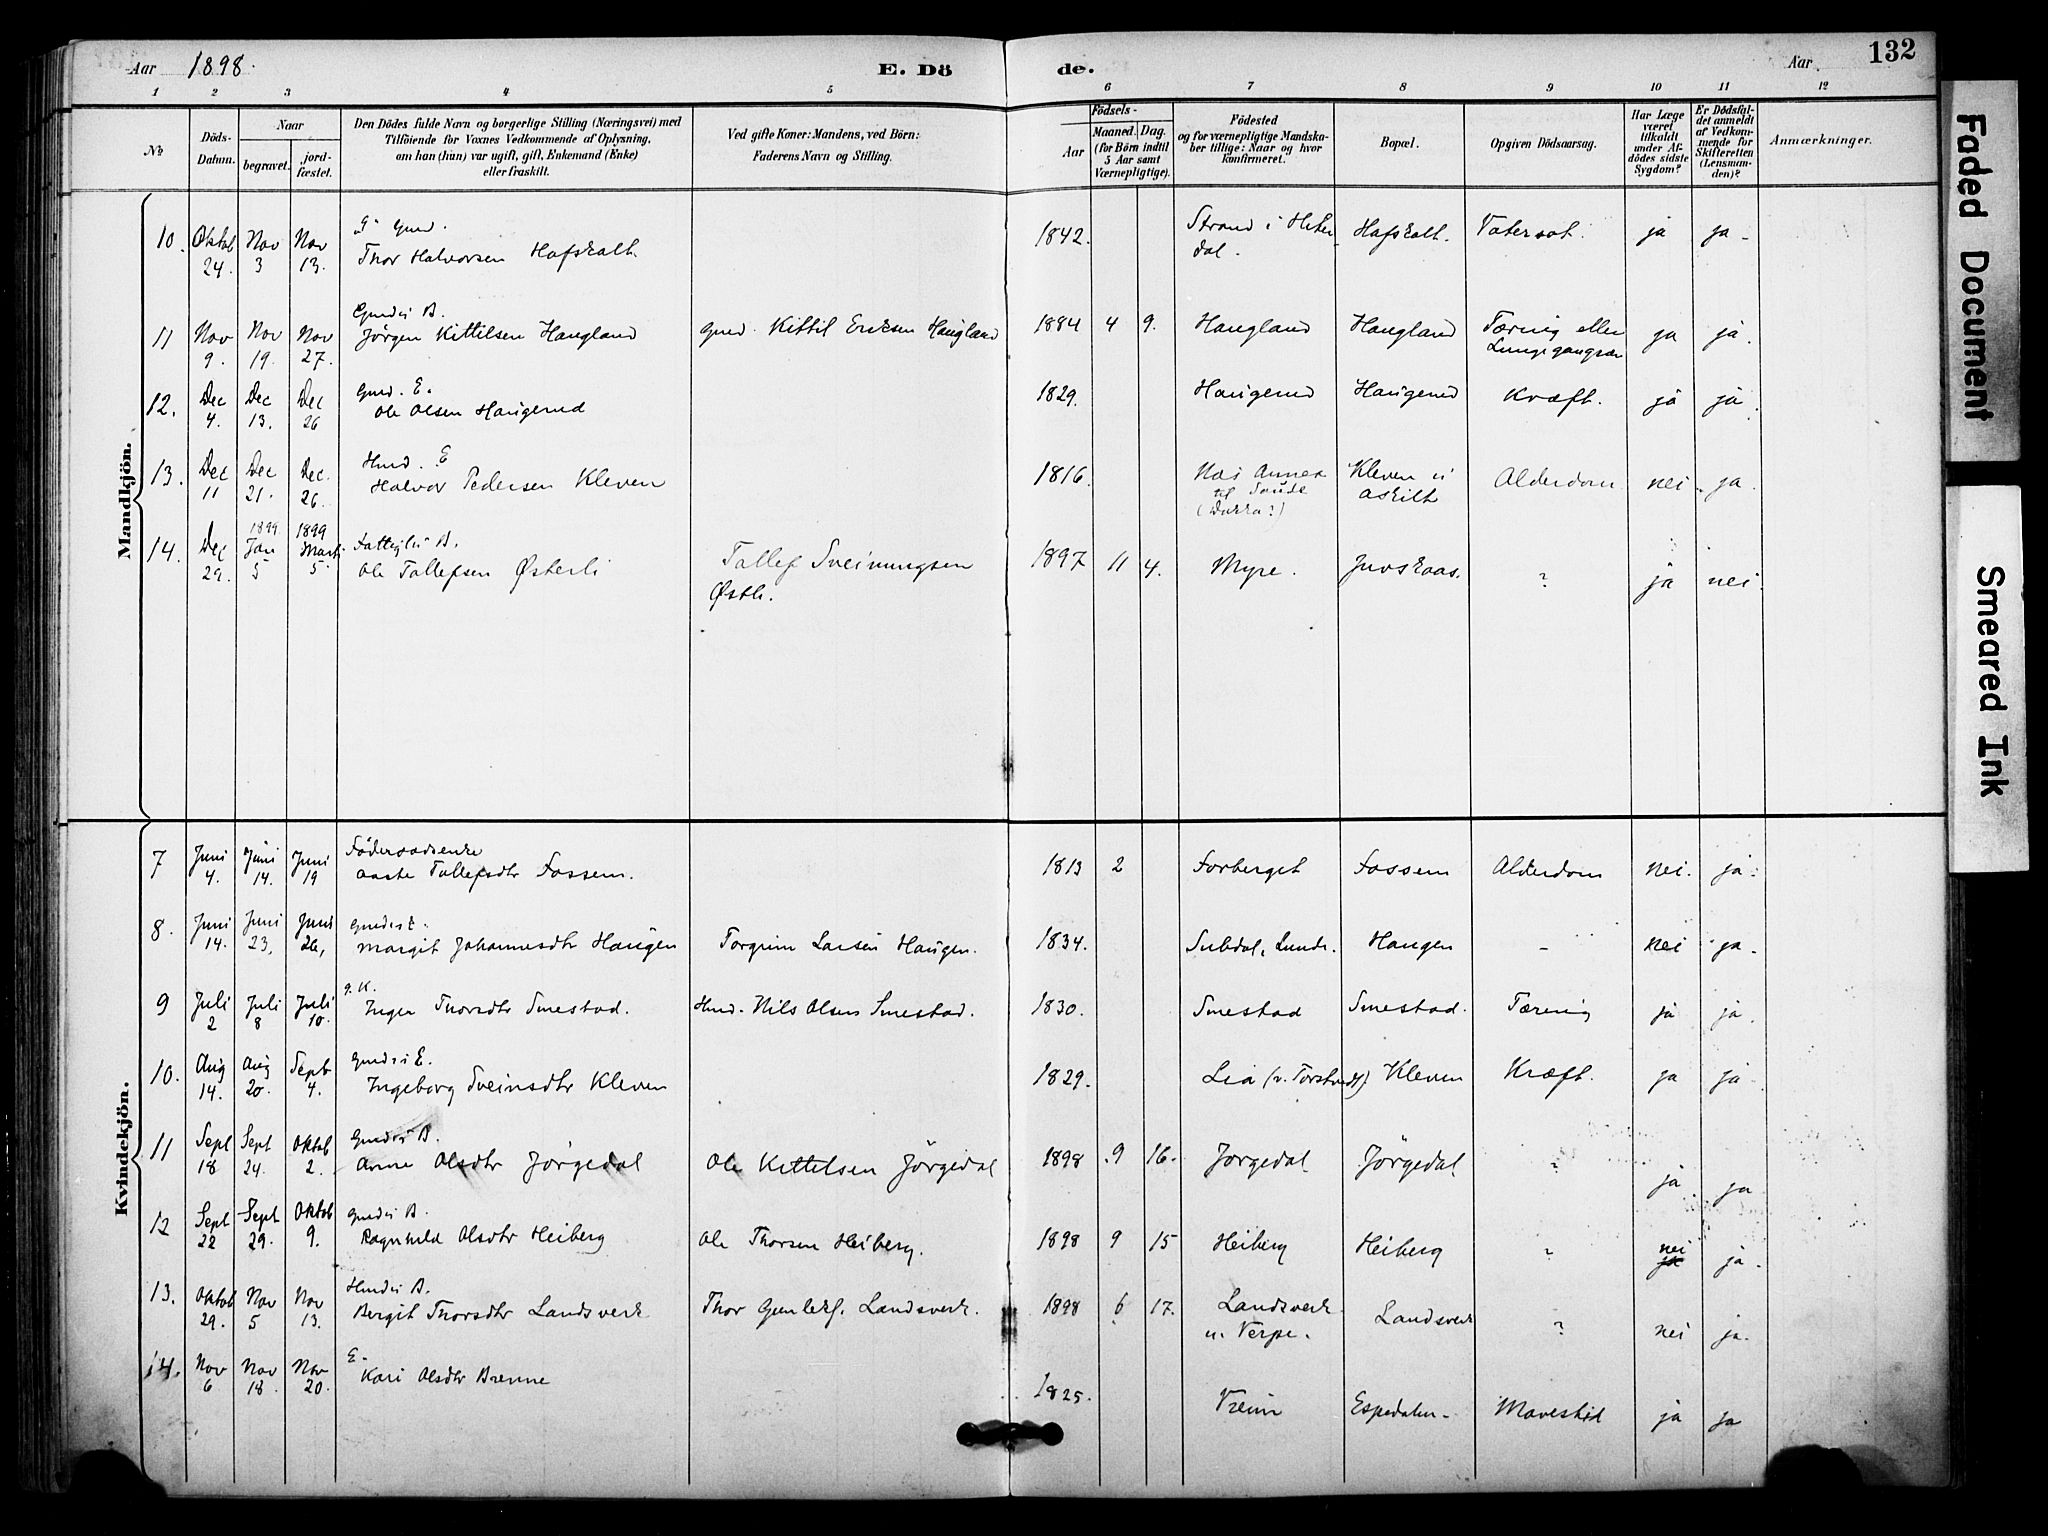 Aar 1898.
E. Dö
de.
Aar
132
1 2 3 4 5 6 7 8 9 10 11 12
No
Döds-
Datum.
Naar
begravet.
jord-
fæstet.
Den Dödes fulde Navn og borgerlige Stilling (Næringsvei) med
Tilföiende for Voxnes Vedkommende af Oplysning,
om han (hun) var ugift, gift, Enkemand (Enke)
eller fraskilt.
Ved gifte Koner: Mandens, ved Börn:
Faderens Navn og Stilling.
Födsels-
Aar
Maaned. Dag.
(for Börn indtil
5 Aar samt
Værnepligtige).
Födested
og for værnepligtige Mandska-
ber tillige: Naar og hvor
konfirmeret.
Bopæl.
Opgiven Dödsaarsag.
Har Læge
været
tilkaldt
under Af-
dödes sidste
Sygdom?
Er Dödsfal-
det anmeldt
af Vedkom-
mende for
Skifteretten
(Lensman-
den)?
Anmærkninger.
Mandkjön.
Gmd.
10. Oktob Nov Nov 1842. Strand i Hiter Hafskolt. Vatersot. ja ja
24. 3 13. Thor Halvorsen Hafskolt. dal.
Gmds B.
11 Nov Nov Nov Jörgen Kittilsen Haugland Gmd. Kittil Eriksen Haugland 1884 4 9. Haugland Haugland Tæring eller ja ja.
9. 19. 27.
Gmd. E.
12. Dec Dec Dec Ole Olsen Haugerud 1829. Haugerud Haugerud Kræft. ja ja.
4. 13. 26
Hmd. E
13. Dec Dec Dec. Halvor Pedersen Kleven 1816. Næs Annex Kleven u Alderdom nei ja.
11 21. 26. til Saude Askilt
1899 1899
14. Dec Jan Marts B. 1897 11 4. Myre. ? ja nei.
29. 5 5. Ole Tollefsen Østerli Tollef Sveinungsen
Østli.
Kvindekjön.
Föderaadsenke
7 Juni Juni Juni Aaste Tollefsdtr Fossem. 1813 2 Forberget Fossem Alderdom nei. ja.
4. 14. 19
8. Juni Juni Juni Margit Johannesdtr Haugen Torgrim Larsen Haugen. 1834. Haugen - nei ja
14. 23, 26,
g. K.
9 Juli Juli Juli Inger Thorsdtr Smestad. Hmd. Nils Olsen Smestad. 1830. Smestad Smestad. Tæring ja ja.
2 8 10.
Gmds E.
10. Aug Aug Sept Ingeborg Sveinsdtr Kleven 1829. Lia (v. Torstvedt) Kleven Kræft. ja ja
14. 20. 4.
Gmds B.
11 Sept Sept Oktob Anne Olsdtr Jörgedal Ole Kittilsen Jörgedal 1898 9 16. Jörgedal Jörgedal ? ja ja
18 24. 2.
Gmds B.
12 Sept Sept Oktob Ragnhild Olsdtr Heiberg Ole Thorsen Heiberg. 1898 9 15 Heiberg Heiberg ? nei ja.
22 29. 9. ja
Hmds B.
13. Oktob Nov Nov Bergit Thorsdtr Landsverk Thor Gunleksf. Landsverk. 1898 6 17. Landsverk Landsverk ? nei ja.
29. 5 13. u. Verpe.
E.
14. Nov Nov Nov Kari Olsdtr Brenne
6 18 20. 1825. Vreim Espedalen Mavestid ja ja
Faded Document
Smeared Ink